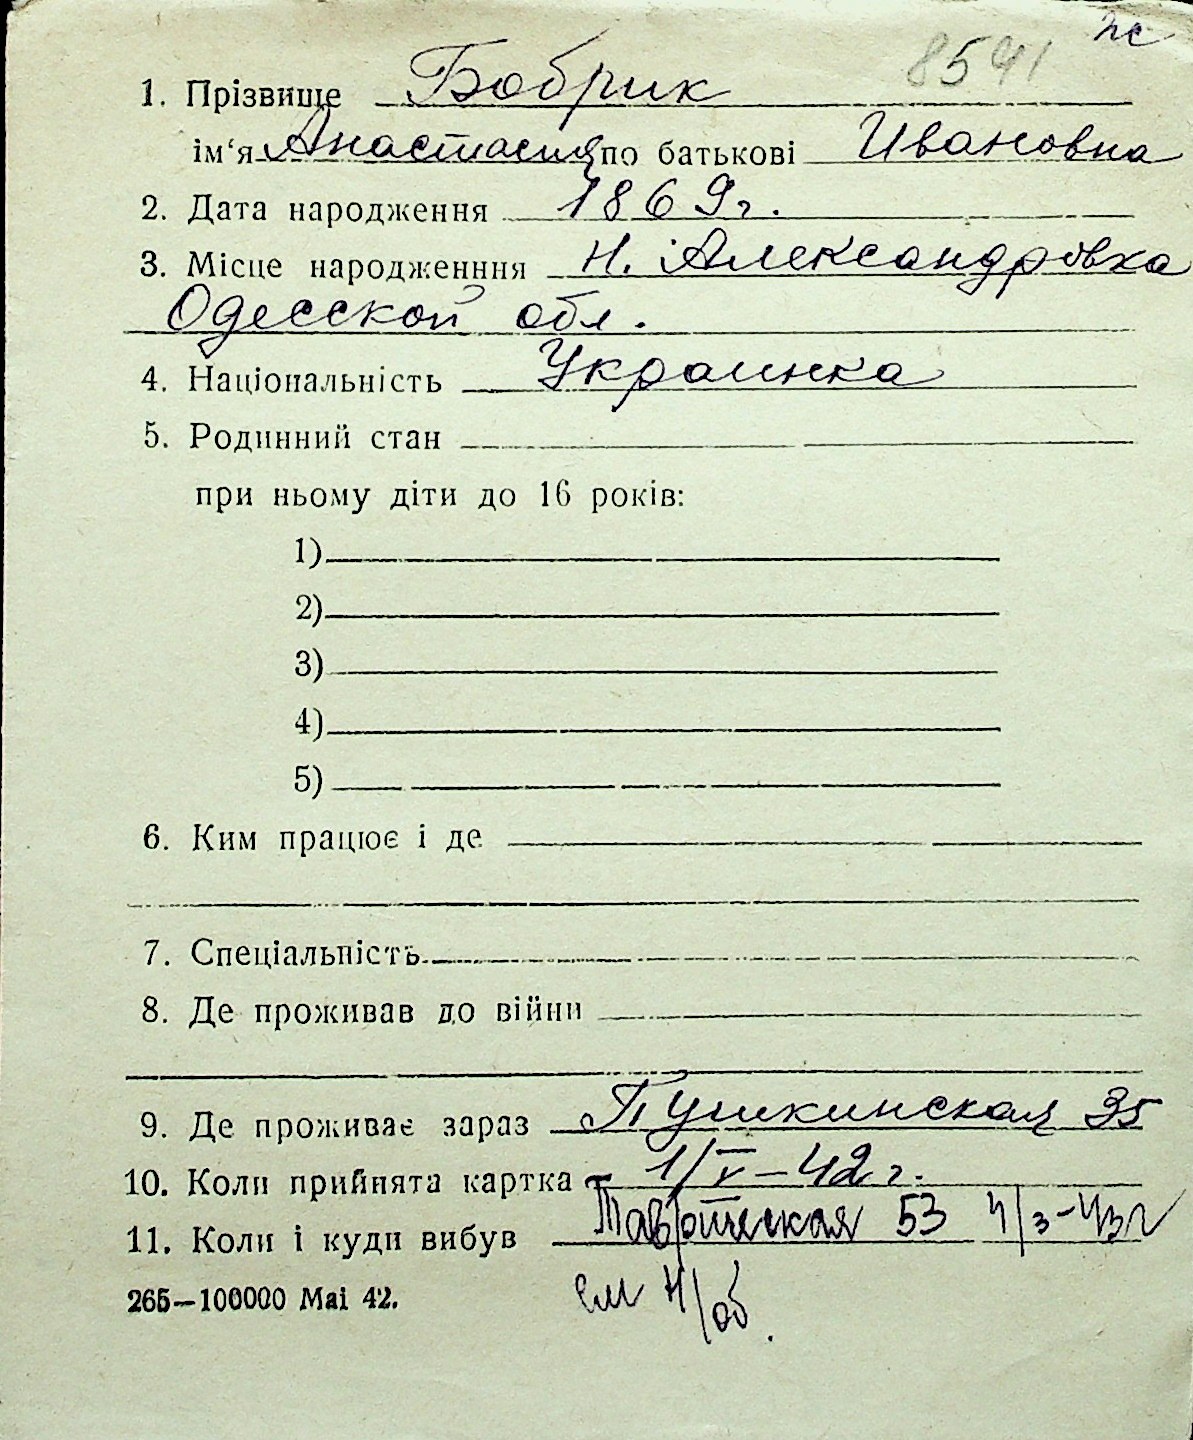 пс
8541
1. Прізвище Бобрик
ім‘я Анастасия по батькові Ивановна
2. Дата народження 1869г.
3. Місце народженння Н. Александровка
Одесской обл.
4. Національність Украинка
5. Родинний стан
при ньому діти до 16 років:
1)
2)
3)
4)
5)
6. Ким працює і де
7. Спеціальність
8. Де проживав до війни
9. Де проживає зараз Пушкинская 35
10. Коли прийнята картка 1/V–42г.
11. Коли і куди вибув Таврическая 53 4/3–43г
см н/об.
265—100000 Mai 42.